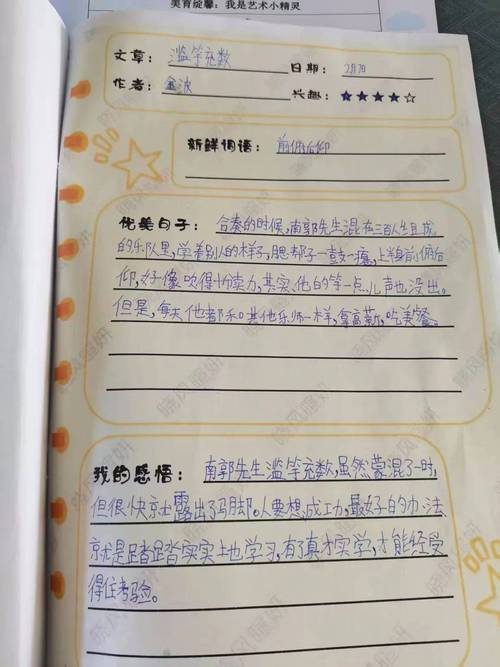 美育绽馨：我是艺术小精灵
文章：滥竽充数 日期：2月7日
作者：金波 兴趣：★★★★☆
新鲜词语：前俯后仰
优美句子：合奏的时候,南郭先生混在三百人组成
的乐队里,学着别人的样子,腮帮子一鼓一瘪,上半身前俯后
仰,好像吹得十分卖力,其实,他的竽一点儿声也没出。
但是,每天他都和其他乐师一样,拿高薪,吃美餐。
我的感悟：南郭先生滥竽充数,虽然蒙混了一时,
但很快就露出了马脚。人要想成功,最好的办法
就是踏踏实实地学习,有了真才实学,才能经受
得住考验。